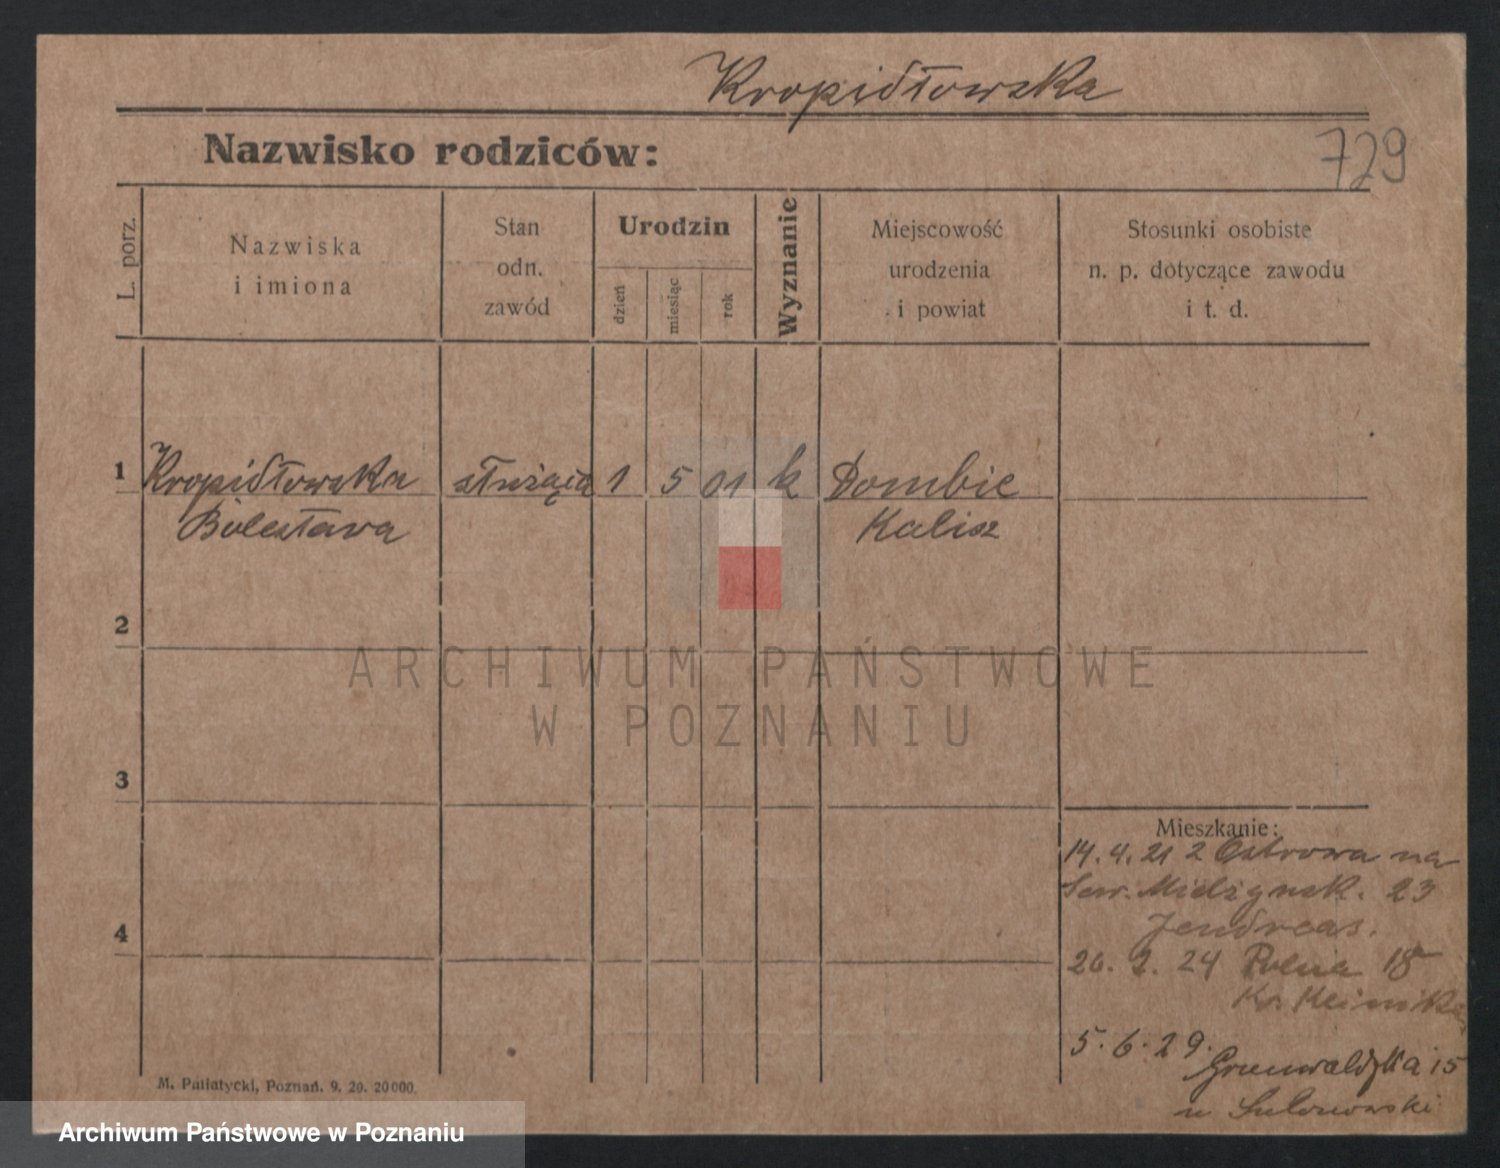 Kropidłowska
Nazwisko rodziców:
729
L. porz.
Nazwiska
i imiona
Stan
odn.
zawód
Urodzin
dzień
miesiąc
rok
Wyznanie
Miejscowość
urodzenia
i powiat
Stosunki osobiste
n. p. dotyczące zawodu
i t. d.
1 Kropidłowska służąca 1 5 01 k Dombie
Bolesława Kalisz
2
ARCHIWUM PAŃSTWOWE
W POZNANIU
3
Mieszkanie:
14.4.21 z Ostrowa na
Sew. Mielżynsk. 23
4
20. 2. 24 Polna 18
5.6.29.
Grunwaldzka 15
u
M. Putiatycki, Poznań. 9. 20. 20000.
Archiwum Państwowe w Poznaniu